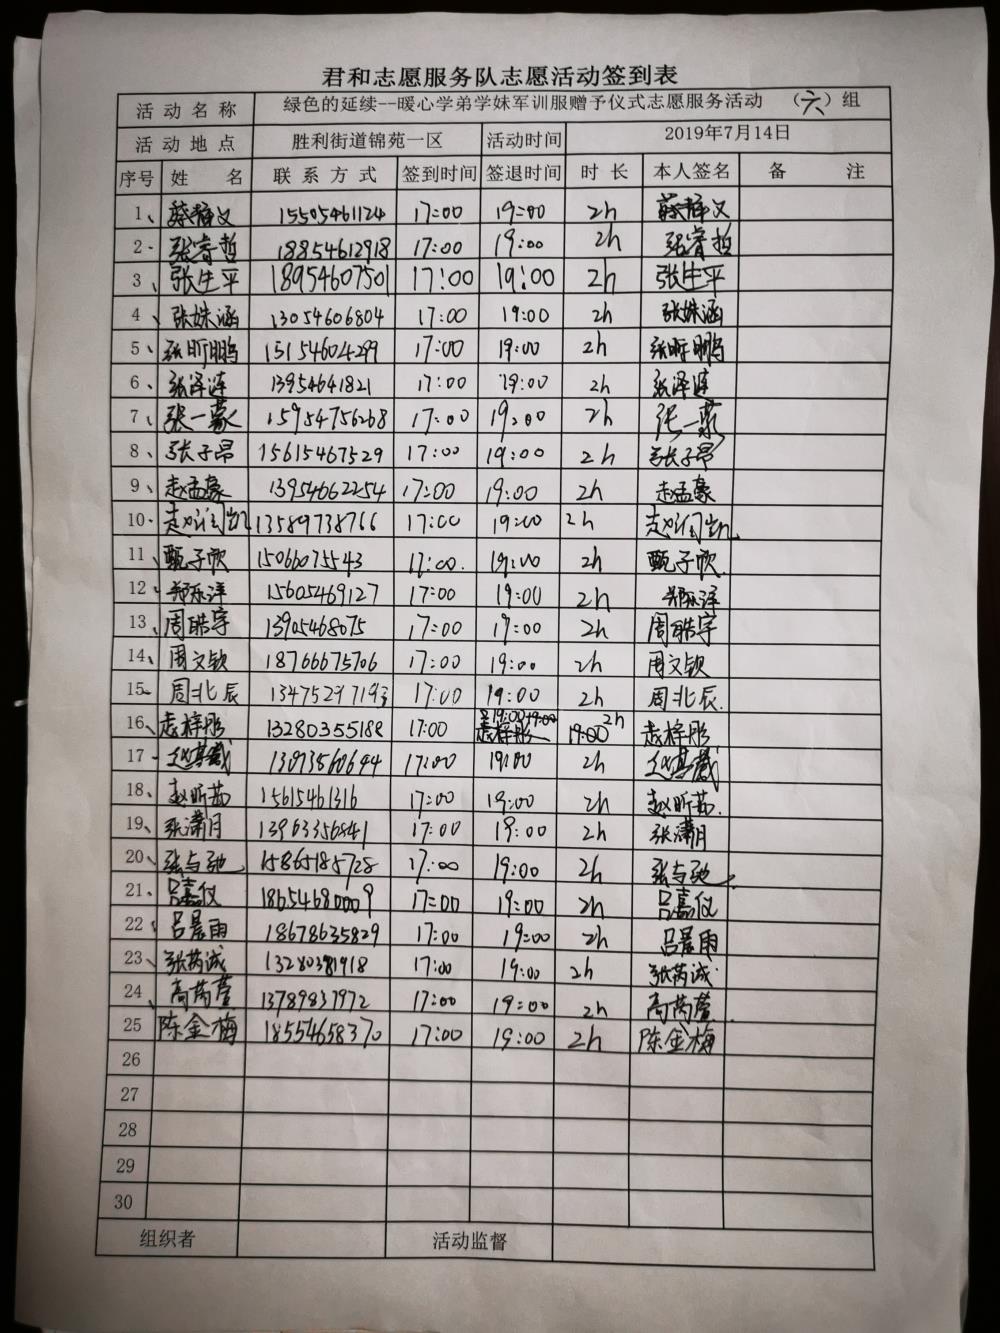 君和志愿服务队志愿活动签到表
活动名称 绿色的延续--暖心学弟学妹军训服赠予仪式志愿服务活动 (六)组
活动地点 胜利街道锦苑一区 活动时间 2019年7月14日
序号 姓名 联系方式 签到时间 签退时间 时长 本人签名 备注
1、 蔡静文 15505461124 17:00 19:00 2h 蔡静文
2、 张睿哲 18854612918 17:00 19:00 2h 张睿哲
3、 张生平 18954607501 17:00 19:00 2h 张生平
4、 张姝涵 13054606804 17:00 19:00 2h 张姝涵
5、 张昕鹏 15154604299 17:00 19:00 2h 张昕鹏
6、 张泽涟 13954641821 17:00 19:00 2h 张泽涟
7、 张一豪 15954756268 17:00 19:00 2h 张一豪
8、 张子昂 15615467529 17:00 19:00 2h 张子昂
9、 赵孟豪 13954662254 17:00 19:00 2h 赵孟豪
10、 赵润凯 13589738766 17:00 19:00 2h 赵润凯
11、 甄子欣 15066075543 17:00 19:00 2h 甄子欣
12、 郑乐洋 15605469127 17:00 19:00 2h 郑乐洋
13、 周皓宇 13905468075 17:00 19:00 2h 周皓宇
14、 周文钦 18766675706 17:00 19:00 2h 周文钦
15、 周北辰 13475297193 17:00 19:00 2h 周北辰
16、 13280355188 17:00 19:00 2h
17、 17:00 19:00 2h
18、 赵昕茹 15615461316 17:00 19:00 2h 赵昕茹
19、 张潇月 13963356841 17:00 19:00 2h 张潇月
20、 张与弛 15865185728 17:00 19:00 2h 张与弛
21、 吕嘉仪 18654680009 17:00 19:00 2h 吕嘉仪
22、 吕晨雨 18678635829 17:00 19:00 2h 吕晨雨
23、 张芮诚 17:00 19:00 2h 张芮诚
24、 高芮萱 13789837972 17:00 19:00 2h 高芮萱
25 陈金梅 18554658370 17:00 19:00 2h 陈金梅
26
27
28
29
30
组织者 活动监督